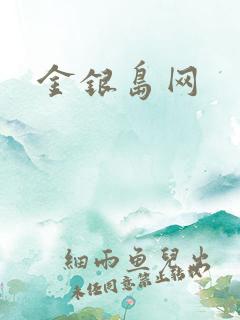 金银岛网
细雨鱼儿出
未经同意禁止转载